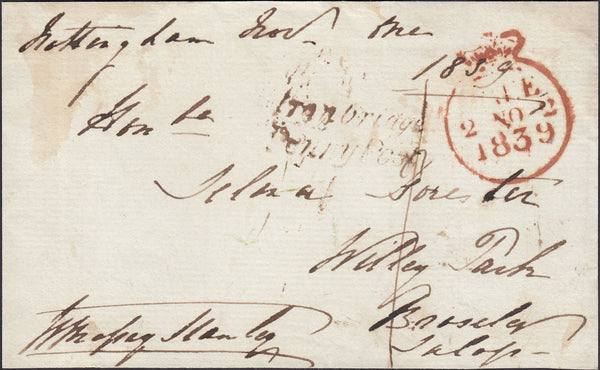 Nottingham Nov. one
1839
Honble
Ironbridge
Penny Post
2 NO
1839
Selina Forester
Willey Park
Broseley
Salop
Stanley